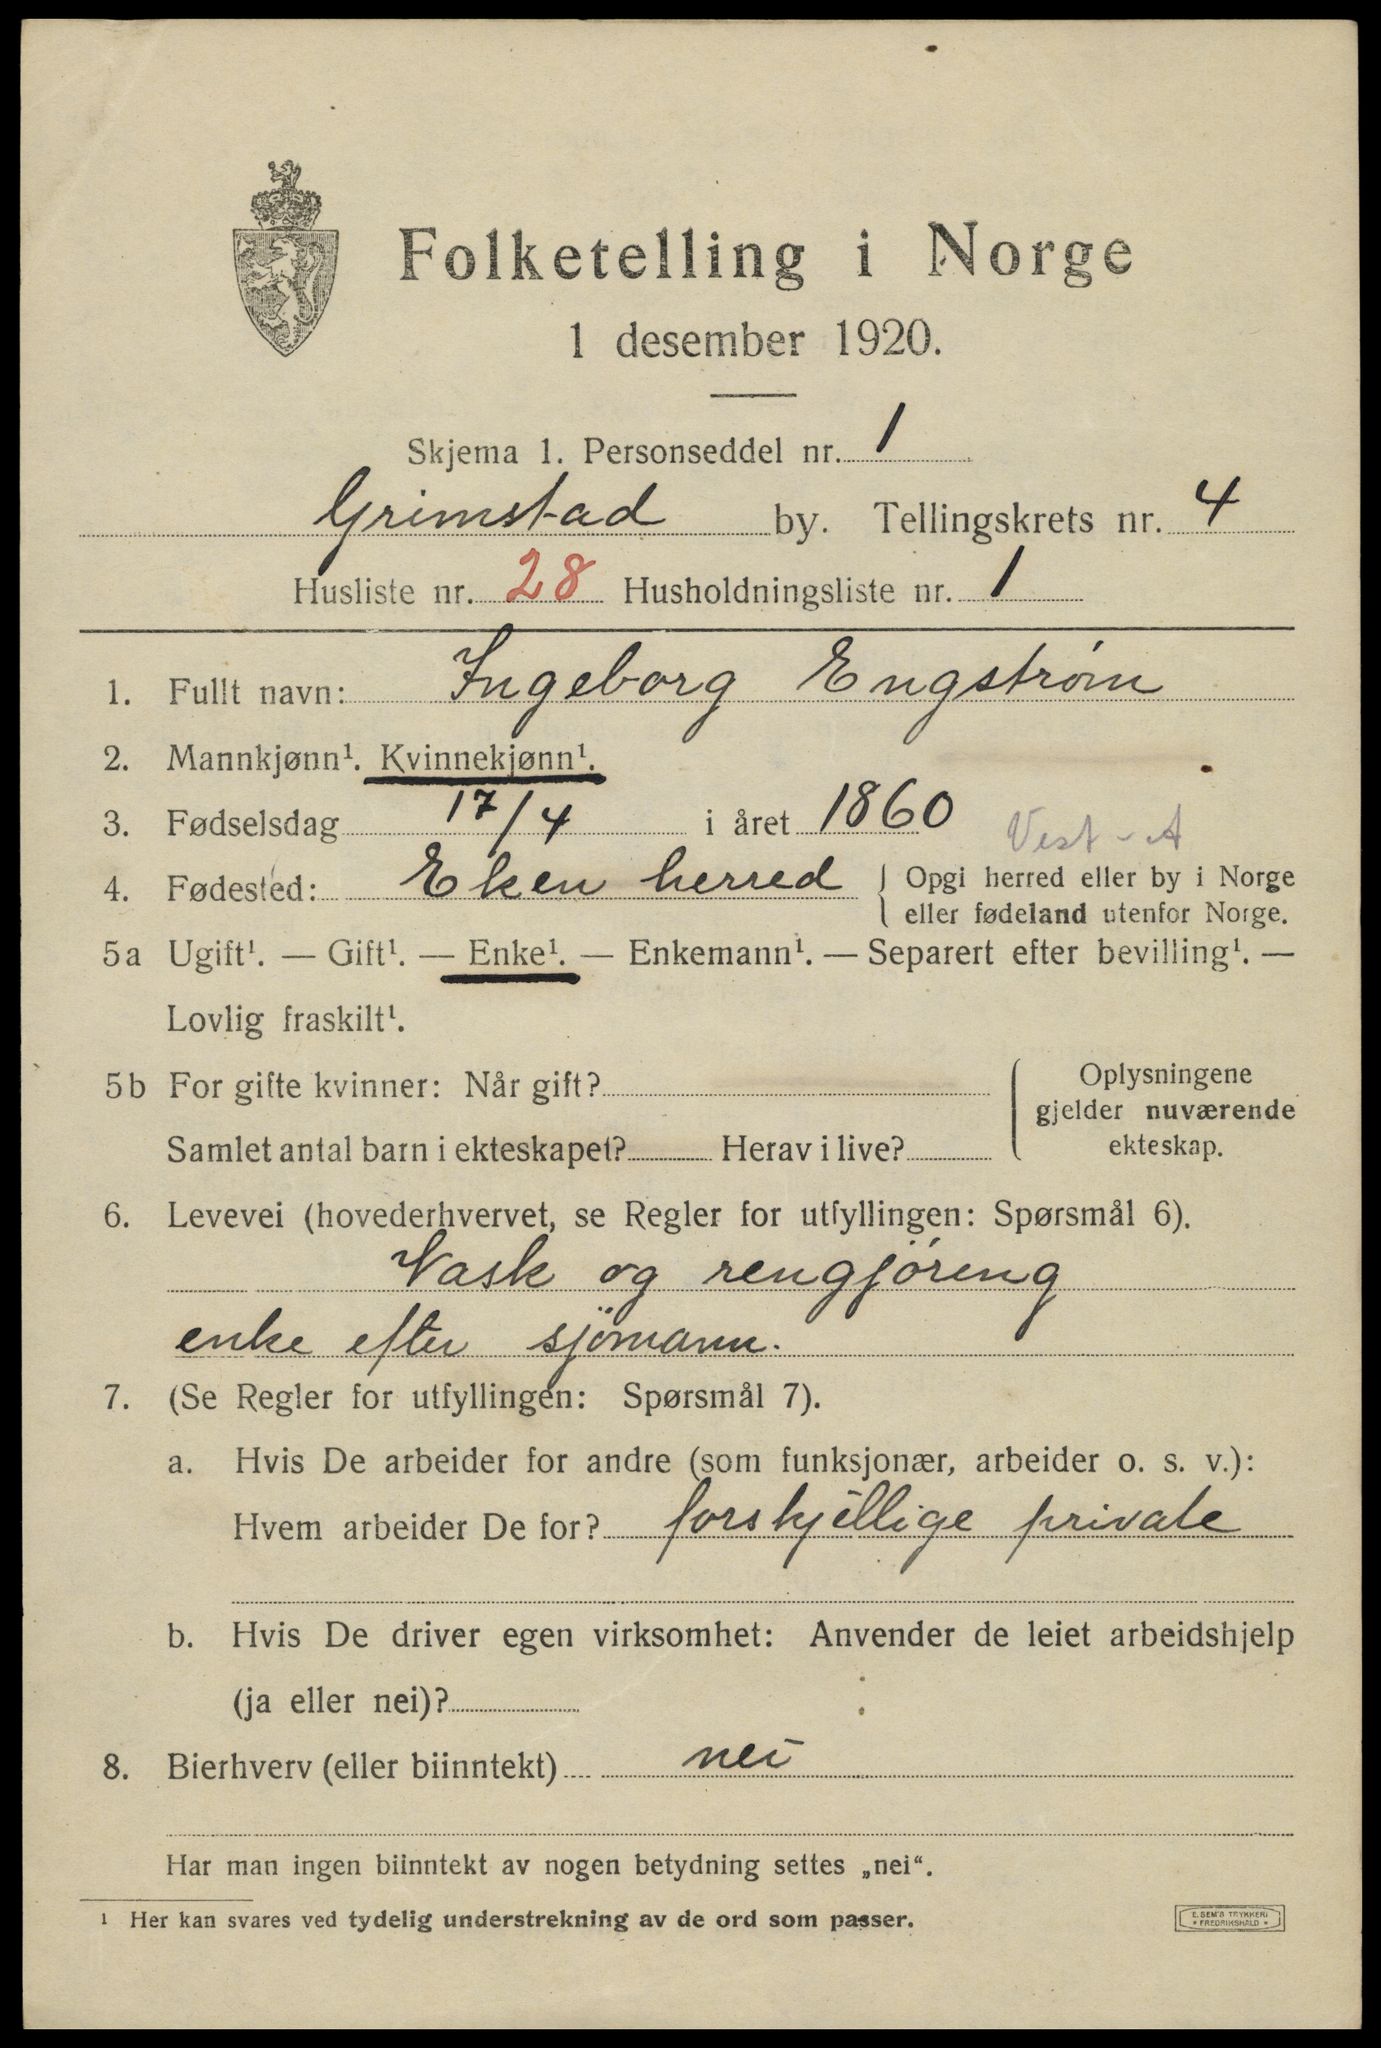 Folketelling i Norge
1 desember 1920.
Skjema 1. Personseddel nr. 1
Grimstad by. Tellingskrets nr. 4
Husliste nr. 28 Husholdningsliste nr. 1
1. Fullt navn: Ingeborg Engstrøm
2. Mannkjønn¹. Kvinnekjønn¹.
3. Fødselsdag 17/4 i året 1860
Vest-A
4. Fødested: Eken herred { Opgi herred eller by i Norge
eller fødeland utenfor Norge.
5a Ugift¹. — Gift¹. — Enke¹. — Enkemann¹. — Separert efter bevilling¹. —
Lovlig fraskilt¹.
5b For gifte kvinner: Når gift?
Samlet antal barn i ekteskapet? Herav i live?
Oplysningene
gjelder nuværende
ekteskap.
6. Levevei (hovederhvervet, se Regler for utfyllingen: Spørsmål 6).
Vask og rengjöreng
enke efter sjömann.
7. (Se Regler for utfyllingen: Spørsmål 7).
a. Hvis De arbeider for andre (som funksjonær, arbeider o. s. v.):
Hvem arbeider De for? forskjellige private
b. Hvis De driver egen virksomhet: Anvender de leiet arbeidshjelp
(ja eller nei)?
8. Bierhverv (eller biinntekt) nei
Har man ingen biinntekt av nogen betydning settes „nei“.
¹ Her kan svares ved tydelig understrekning av de ord som passer.
E. SEM'S TRYKKERI
* FREDRIKSHALD *